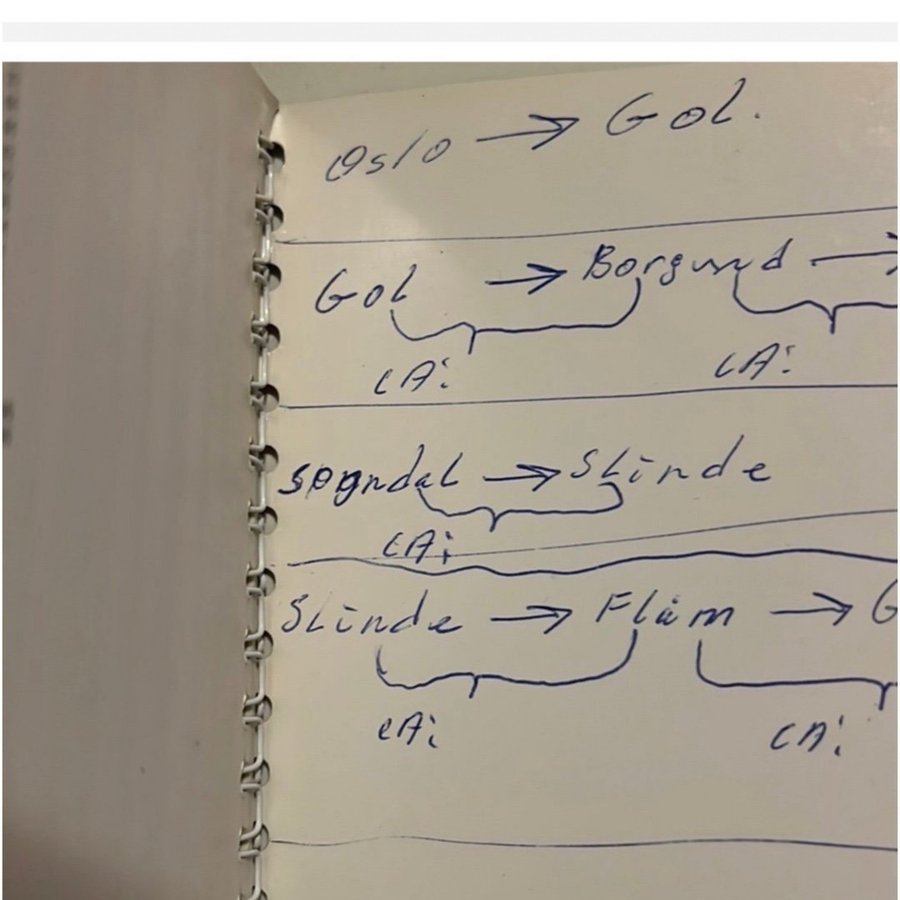 Oslo → Gol.
Gol → Borgund →
CA: CA:
Sogndal → Slinde
CA:
Slinde → Flåm → G
CA: CA: